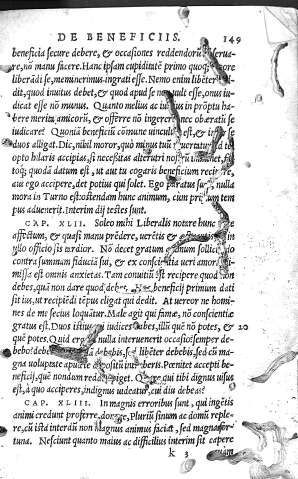 DE BENEFICIIS. 149
beneficia secure debere, & occasiones reddendorū
re, nō manu facere. Hanc ipsam cupiditatē primo quoq;
liberādi se, meminerimus ingrati esse. Nemo enim libēter
dit, quod inuitus debet, & quod apud se non uult esse, onus iu-
dicat esse nō munus. Quanto melius ac iustius in prōptu ha-
bere merita amicorū, & offerre nō ingerere, nec obæratū se
iudicare? Quoniā beneficiū cōmune uinculū est, & inter se
duos alligat. Dic, nihil moror, quo minus tua
opto hilaris accipias, si necessitas alterutri nostrū
toq; quodā datum est, ut aut tu cogaris beneficium recipere,
aut ego accipere, det potius qui solet. Ego paratus sum, nulla
mora in Turno est: ostendam hunc animum, cum primum tem
pus aduenerit. Interim dij testes sunt.
CAP. XLII. Soleo mihi Liberalis notare hunc
affectum, & quasi manu prēdere, uerētis &
ullo officio sis tardior. Nō decet gratum animum sollici
contra summam fiduciā sui, & ex conscientia ueri amor
missa est omnis anxietas. Tam conuitiū est recipere quod non
debes, quā non dare quod debes. beneficij primum dati
sit ius, ut recipiēdi tēpus eligat qui dedit. At uereor ne homi-
nes de me secius loquātur. Male agit qui famæ, nō conscientiæ
gratus est. Duos istius rei iudices habes, illū quē nō potes, & 20
quē potes. Quid ergo si nulla interuenerit occasio? semper de-
bebo? debebis, sed libēter debebis, sed cū ma-
gna uoluptate apud te depositū intueberis. Pœnitet accepti be-
neficij, quē nondum redditi piget. Quare, qui tibi dignus uisus
est, à quo acciperes, indignus uideatur, cui diu debeas?
CAP. XLIII. In magnis erroribus sunt, qui ingētis
animi credunt proferre, donare, Plurīu sinum ac domū reple-
re, cū ista interdū non magnus animus faciat, sed magna for-
tuna. Nesciunt quanto maius ac difficilius interim sit capere
k 3 quam